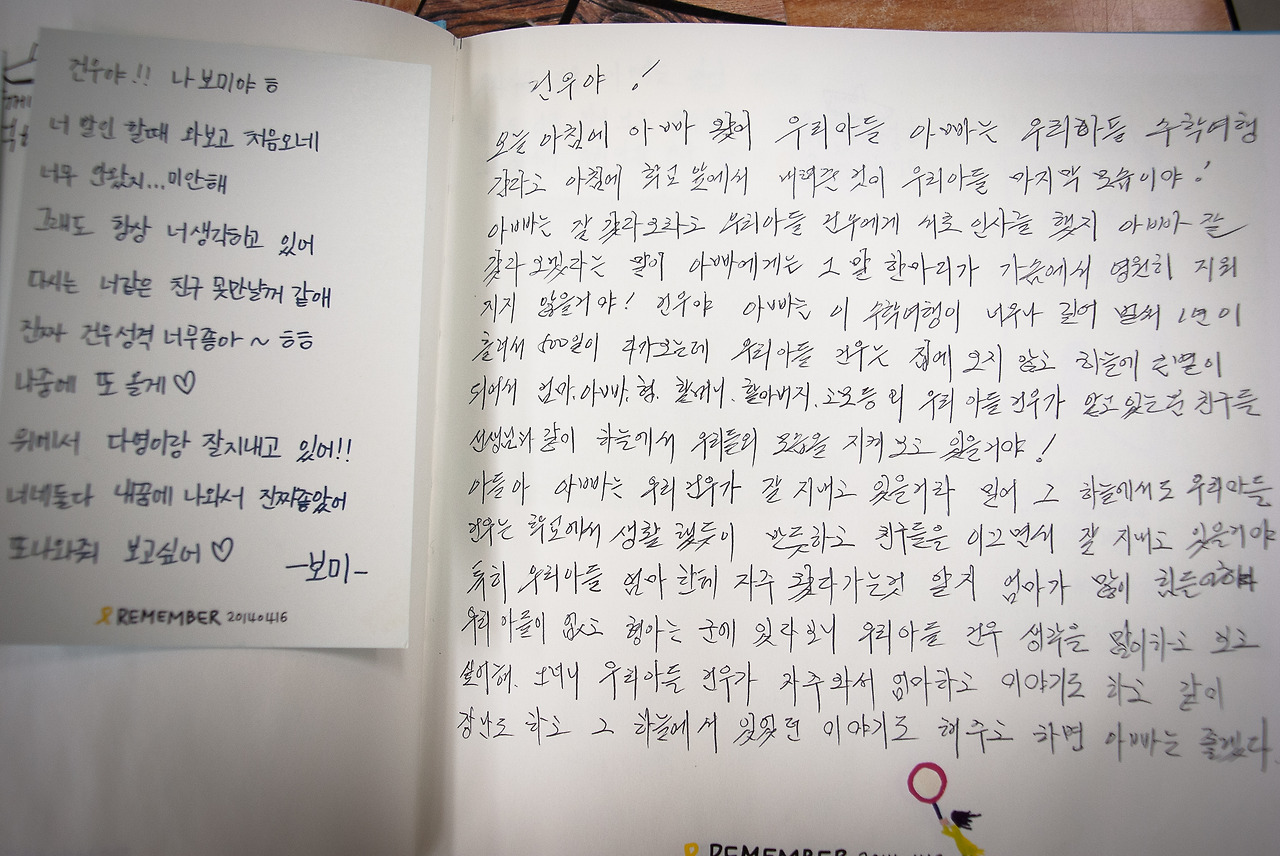 건우야!! 나 보미야 ㅎ
너 발인 할때 와보고 처음오네
너무 안왔지...미안해
그래도 항상 너생각하고 있어
다시는 너같은 친구 못만날꺼 같애
진짜 건우성격 너무좋아 ~ ㅎㅎ
나중에 또 올게 ♡
위에서 다영이랑 잘지내고 있어!!
너네둘다 내꿈에 나와서 진짜좋았어
또나와줘 보고싶어 ♡
-보미-
REMEMBER 20140416
건우야!
오늘 아침에 아빠 왔어 우리아들 아빠는 우리아들 수학여행
갈라고 아침에 학교 앞에서 내려준 것이 우리아들 마지막 모습이야!
아빠는 잘 갔다오라고 우리아들 건우에게 서로 인사를 했지 아빠 잘
갔다 오겠다는 말이 아빠에게는 그 말 한마디가 가슴에서 영원히 지워
지지 않을거야! 건우야 아빠는 이 수학여행이 너무나 길어 벌써 1년이
흘러서 500일이 다가오는데 우리아들 건우는 집에 오지 않고 하늘에 별이
되어서 엄마, 아빠, 형, 할머니, 할아버지, 고모등 외 우리 아들 건우가 알고 있는 친구들
선생님과 같이 하늘에서 우리들의 모습을 지켜 보고 있을거야!
아들아 아빠는 우리건우가 잘 지내고 있을거라 믿어 그 하늘에서도 우리아들
건우는 학교에서 생활 했듯이 반듯하고 친구들을 이끄면서 잘 지내고 있을거야
특히 우리아들 엄마 한테 자주 왔다가는것 알지 엄마가 많이 힘들어하
우리 아들이 없고 형아는 군에 있다보니 우리아들 건우 생각을 많이하고 보고
싶어해. 그러니 우리아들 건우가 자주와서 엄마하고 이야기도 하고 같이
장난도 하고 그 하늘에서 있었던 이야기도 해주고 하면 아빠는 좋겠다.
REMEMBER